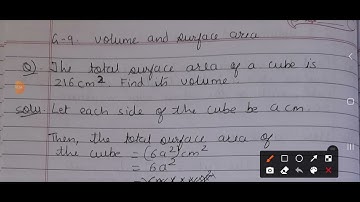 G-9. Volume and surface area
Q). The total surface area of a cube is
216cm². Find its volume.
Solu. Let each side of the cube be a cm.
Then, the total surface area of
the cube = (6a²) cm²
= 6a²